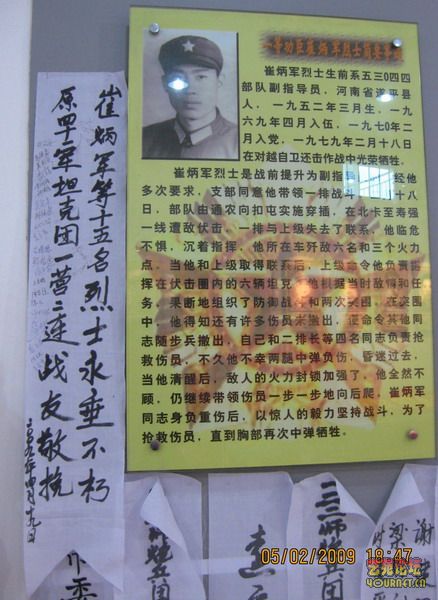 一等功臣崔炳军烈士
崔炳军烈士生前系五三0四四
部队副指导员，河南省遂平县
人，一九五二年三月生，一九
六九年四月入伍，一九七0年二
月入党，一九七九年二月十八日
在对越自卫还击作战中光荣牺牲。
崔炳军烈士是战前提升为副指导
经他
多次要求，支部同意他带领一排战斗
十八
日，部队由通农向扣屯实施穿插，在北卡至寿强
一线遭敌伏击，一排与上级失去了联系，他临危
不惧，沉着指挥，他所在车歼敌六名和三个火力
点。当他和上级取得联系后，上级命令他负责指
挥在伏击圈内的六辆坦克，他根据当时敌情和任
务，果断地组织了防御战斗和两次突围，在突围
中，他得知还有许多伤员未撤出，便命令其他同
志随步兵撤出，自己和二排长等四名同志负责抢
救伤员，不久他不幸两腿中弹负伤，昏迷过去，
当他清醒后，敌人的火力封锁加强了，他全然不
顾，仍继续带领伤员一步一步地向后爬，崔炳军
同志身负重伤后，以惊人的毅力坚持战斗，为了
抢救伤员，直到胸部再次中弹牺牲。
崔炳军等十五名烈士永垂不朽
原四十二军坦克团一营二连战友敬挽
二00九年四月十九日
05/02/2009 18:47
艺苑论坛
4YOURNET.CN